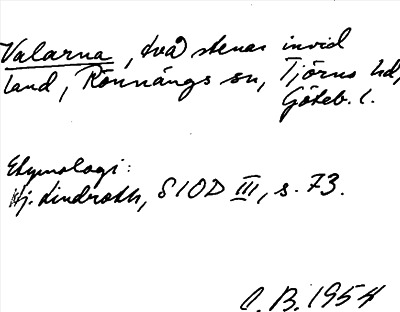 Valarna, två stenar invid
land, Rönnängs sn, Tjörns hd,
Göteb. l.
Etymologi:
Hj. Lindroth, SIOD III, s. 73.
C.B. 1954